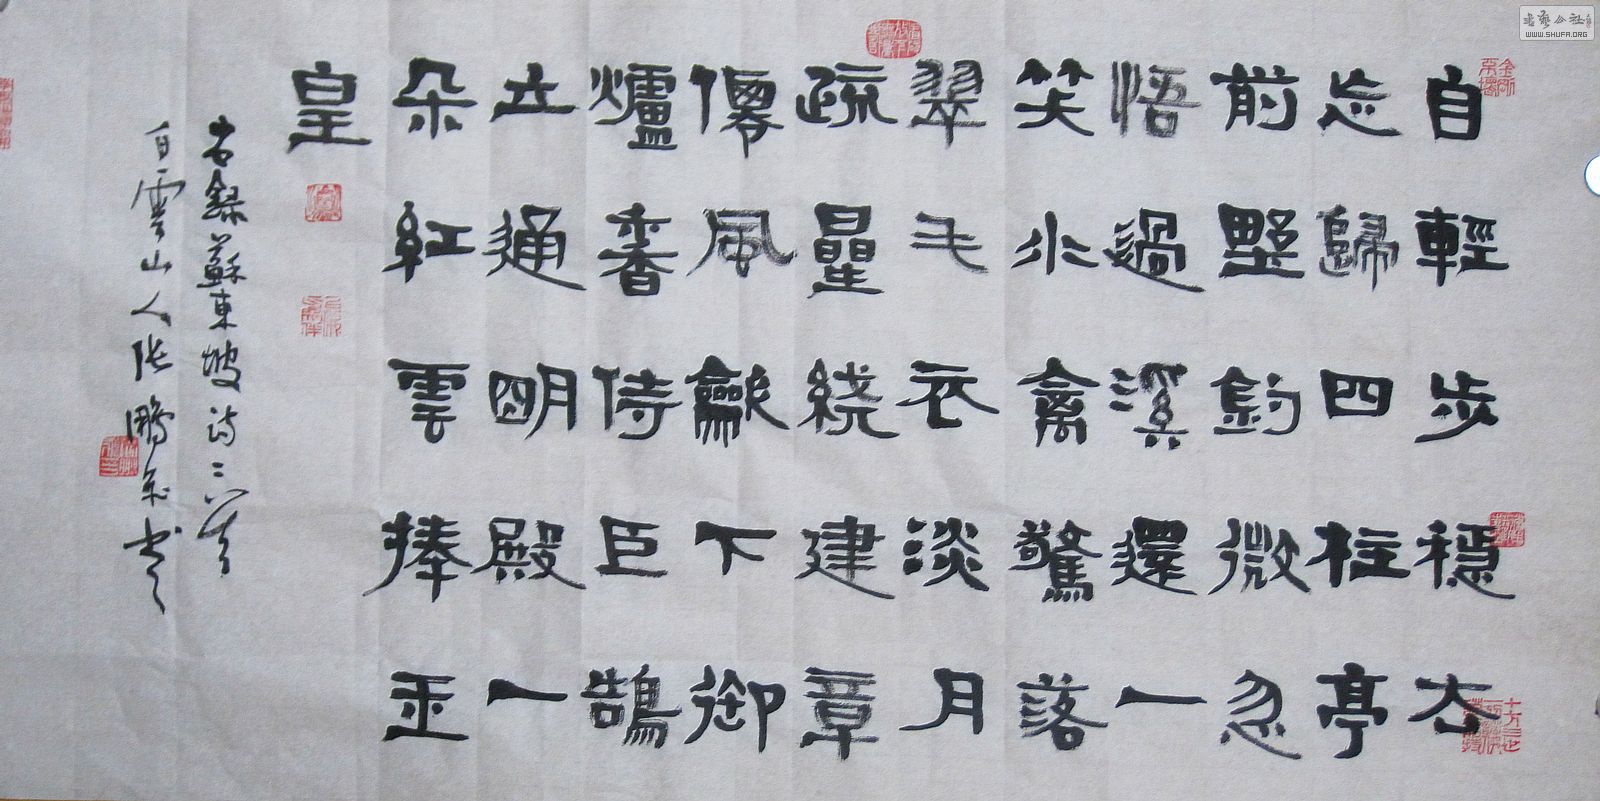 自輕步穩去
忘歸四柱亭
前野彴微忽
悟過溪還一
笑水禽驚落
翠毛衣淡月
疏星繞建章
僊風龡下御
爐香侍臣鵠
立通明殿一
朵紅雲捧玉
皇
右錄蘇東坡詩二首
白雲山人張鵬書
書藝公社
WWW.SHUFA.ORG